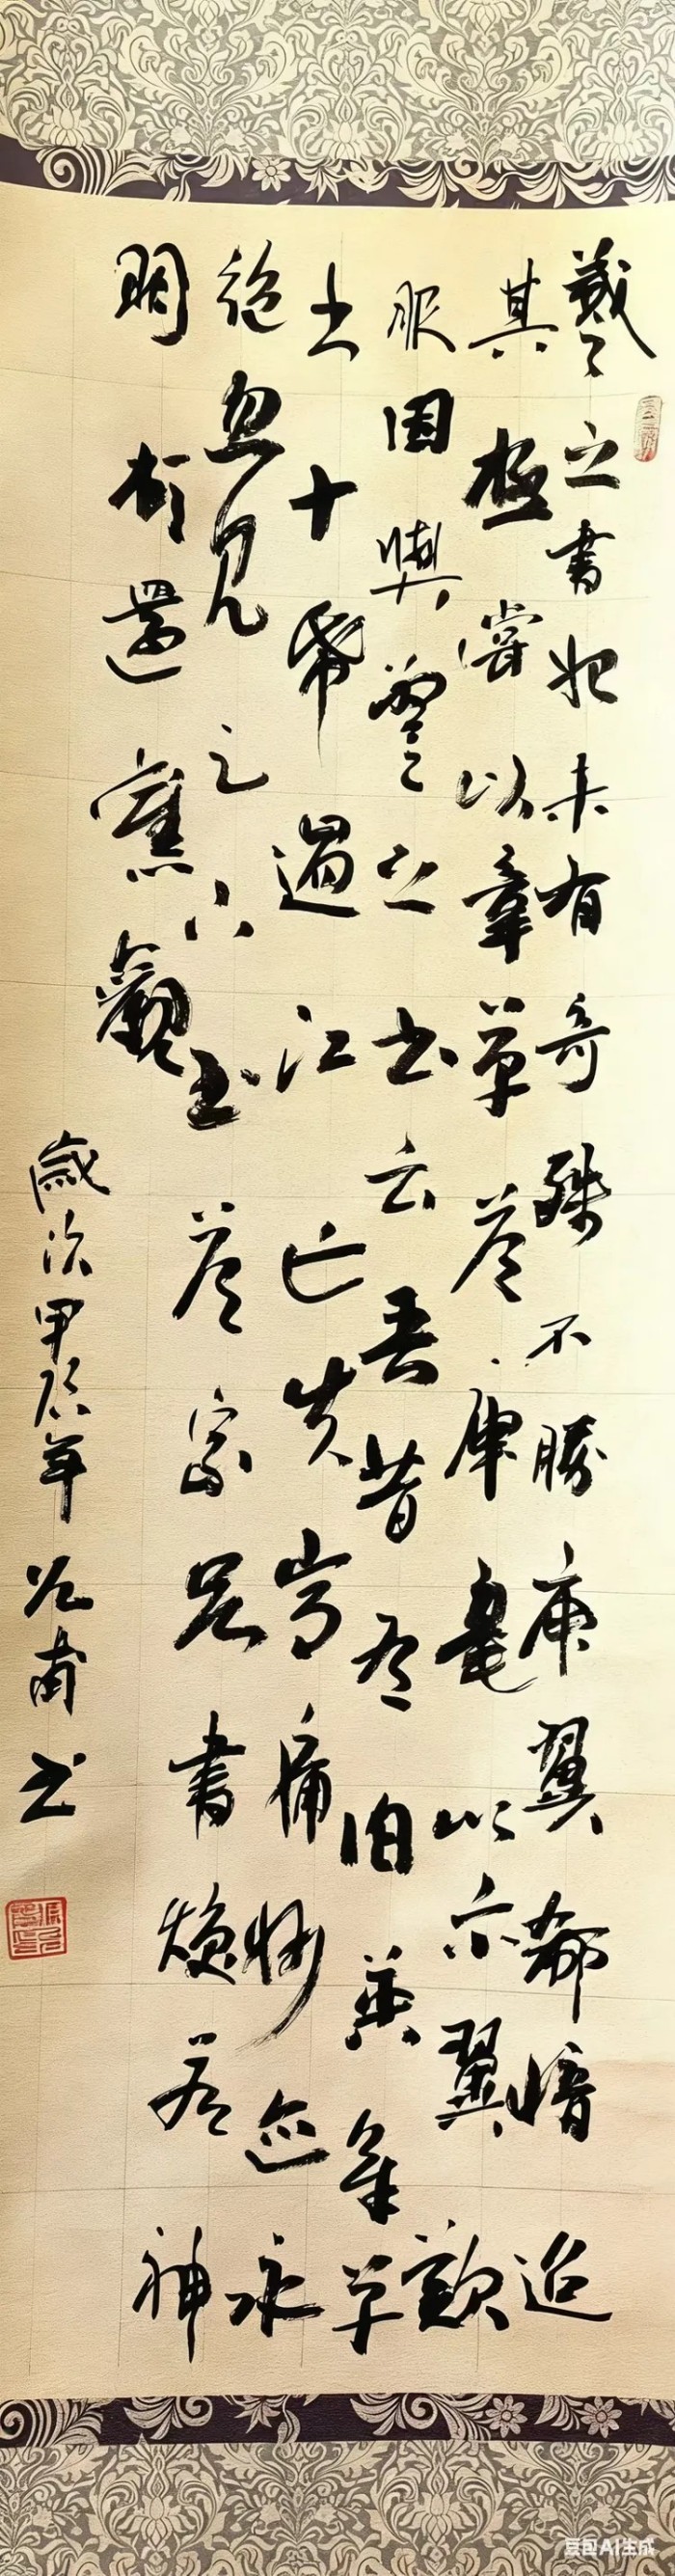 羲之書初未有奇殊不勝庾翼郗愔迨
其極嘗以章草答庾亮以示翼歎
服因與羲之书云吾昔有伯英章草
十帋過江亡失常痛妙迹永
絕忽見足下书答家兄書煥若神
明頓還舊觀
歲次甲辰年甫书
豆包AI生成